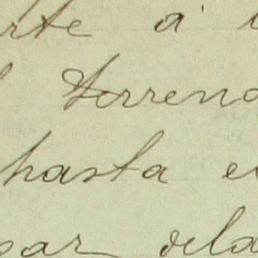 rte á
terreno
hasta e
sar dela